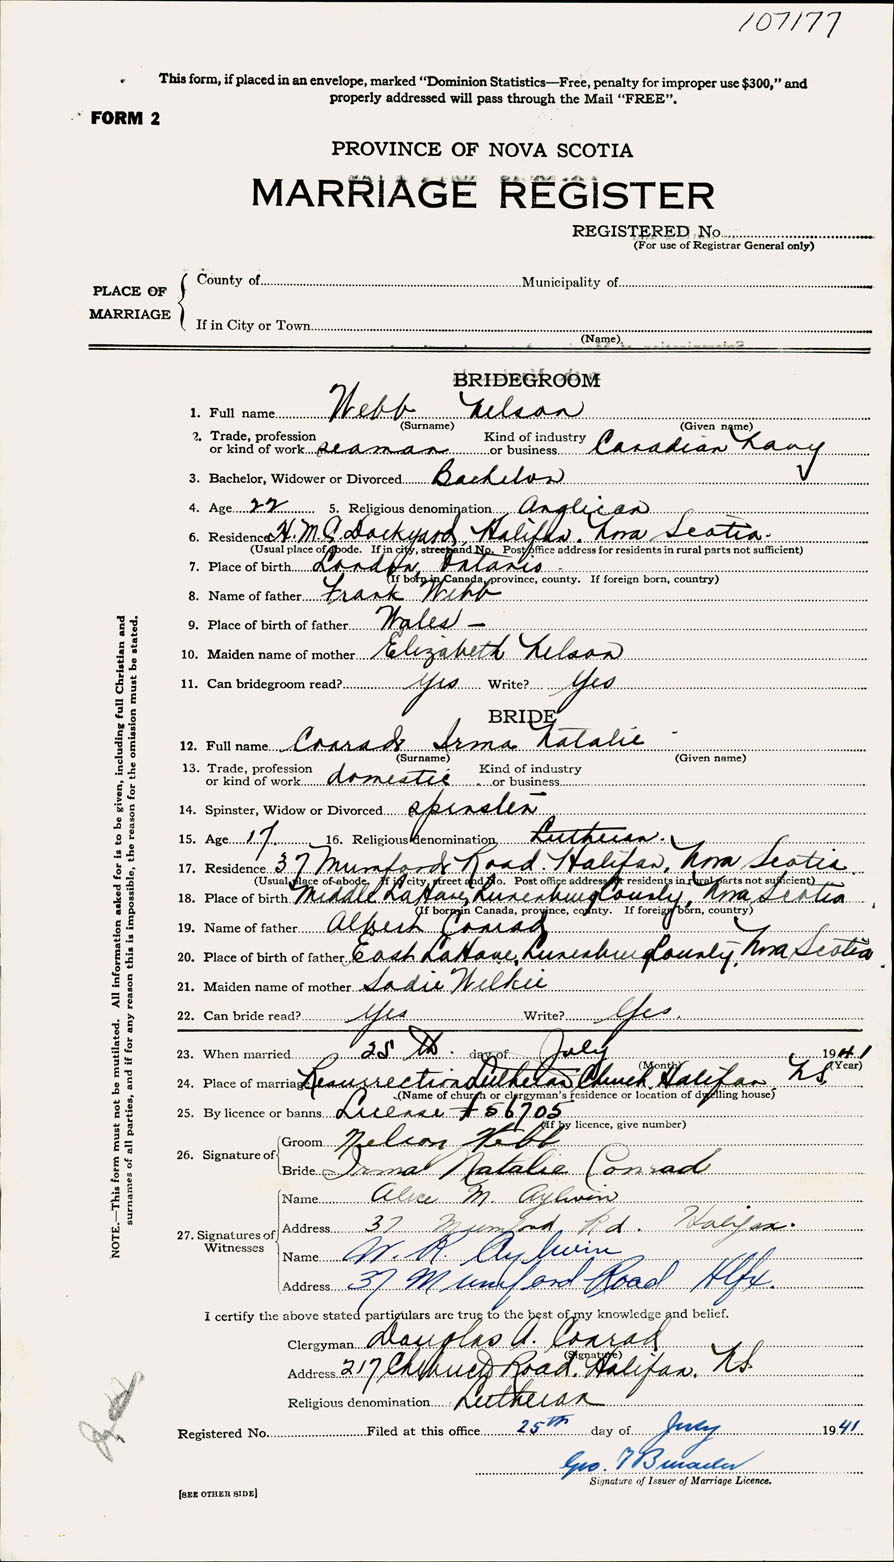 107177
This form, if placed in an envelope, marked "Dominion Statistics—Free, penalty for improper use $300," and
properly addressed will pass through the Mail "FREE".
FORM 2
PROVINCE OF NOVA SCOTIA
MARRIAGE REGISTER
REGISTERED No.
(For use of Registrar General only)
PLACE OF MARRIAGE
County of Municipality of
If in City or Town
(Name)
BRIDEGROOM
1. Full name Webb Nelson
(Surname) (Given name)
2. Trade, profession or kind of work seaman Kind of industry or business Canadian Navy
3. Bachelor, Widower or Divorced Bachelor
4. Age 22 5. Religious denomination Anglican
6. Residence H.M.C. Dockyard, Halifax, Nova Scotia.
(Usual place of abode. If in city, street and No. Post office address for residents in rural parts not sufficient)
7. Place of birth London, Ontario
(If born in Canada, province, county. If foreign born, country)
8. Name of father Frank Webb
9. Place of birth of father Wales —
10. Maiden name of mother Elizabeth Nelson
11. Can bridegroom read? yes Write? yes
BRIDE
12. Full name Conrad Irma Natalie
(Surname) (Given name)
13. Trade, profession or kind of work domestic Kind of industry or business
14. Spinster, Widow or Divorced spinster
15. Age 17. 16. Religious denomination Lutheran.
17. Residence 37 Mumford Road Halifax, Nova Scotia
(Usual place of abode. If in city, street and No. Post office address for residents in rural parts not sufficient)
18. Place of birth Middle LaHave, Lunenburg County, Nova Scotia
(If born in Canada, province, county. If foreign born, country)
19. Name of father Albert Conrad
20. Place of birth of father East LaHave, Lunenburg County, Nova Scotia
21. Maiden name of mother Sadie Wilkie
22. Can bride read? Yes Write? Yes.
23. When married 25th. day of July 1941
(Month) (Year)
24. Place of marriage Resurrection Lutheran Church, Halifax, N.S.
(Name of church or clergyman's residence or location of dwelling house)
25. By licence or banns License #56705
(If by licence, give number)
26. Signature of
Groom Nelson Webb
Bride Irma Natalie Conrad
27. Signatures of Witnesses
Name Alice M. Aylwin
Address 37 Mumford Rd. Halifax.
Name W. R. Aylwin
Address 37 Mumford Road Hlfx.
I certify the above stated particulars are true to the best of my knowledge and belief.
Clergyman Douglas A. Conrad
(Signature)
Address 217 Chebucto Road. Halifax, N.S.
Religious denomination Lutheran
Registered No. Filed at this office 25th day of July 1941
Geo.
Signature of Issuer of Marriage Licence.
[SEE OTHER SIDE]
NOTE.—This form must not be mutilated. All information asked for is to be given, including full Christian and
surnames of all parties, and if for any reason this is impossible, the reason for the omission must be stated.